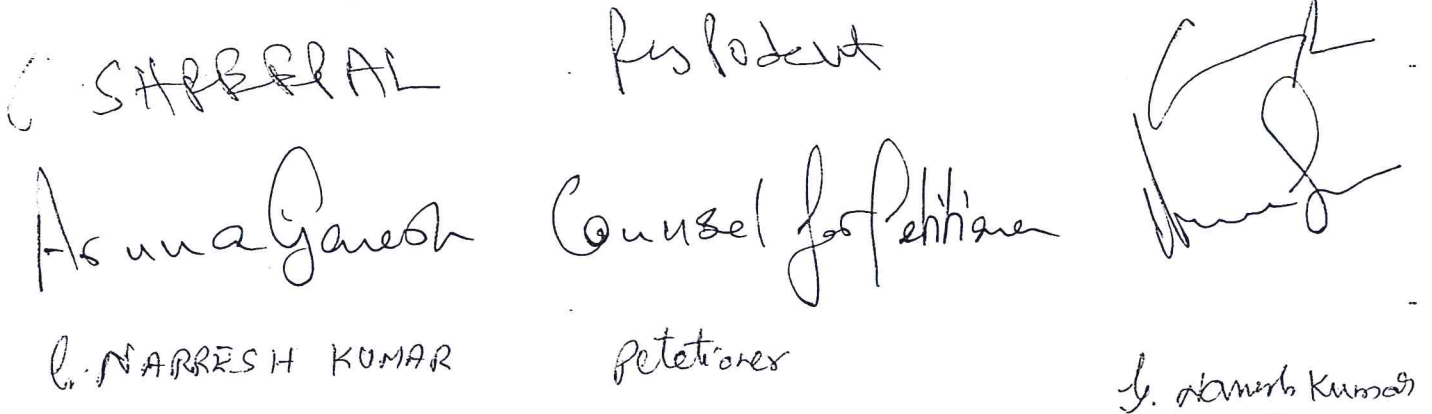 C. SHREEPAL Respodent
Aruna Ganesh Counsel for Petitioner
C. NARRESH KUMAR Petetioner C. Naresh Kumar